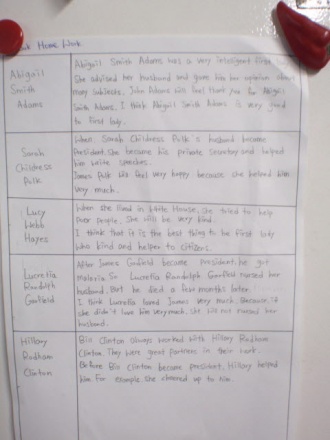 Home Work
Abigail
Smith
Adams
Abigail Smith Adams was a very intelligent first lady
She advised her husband and gave him her opinion about
many subjects. John Adams will feel thank you for Abigail
Smith Adams. I think Abigail Smith Adams is very good
to first lady.
Sarah
Childress
Polk
When Sarah Childress Polk s husband became
president. she became his private secretary and helped
him write speeches.
James Polk will feel very happy because she helped him
very much.
Lucy
Webb
Hayes
When she lived in White House, she tried to help
poor people. She will be very kind.
I think that it is the best thing to be first lady
who kind and helper to citizens.
Lucretia
Randolph
Garfield
After James Garfield became president, he got
malaria. So Lucretia Randolph Garfield nursed her
husband. But he died a few months later.
I think Lucretia loved James very much. Because, if
she didn't love him very much, she will not nursed her
husband.
Hillary
Rodham
Clinton
Bill Clinton always worked with Hillary Rodham
Clinton. They were great partners in their work.
Before Bill Clinton become president, Hillary helped
him. For example, she cheered up to him.